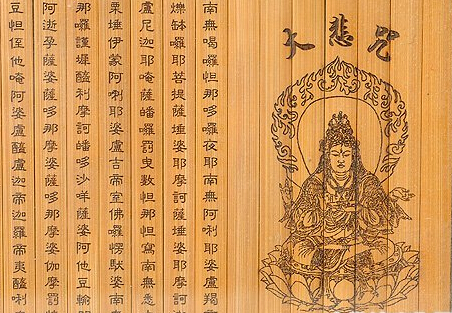 大悲咒
南無喝囉怛那哆囉夜耶南無阿唎耶婆盧羯
爍缽囉耶菩提薩埵婆耶摩訶薩埵婆耶摩訶
盧尼迦耶唵薩皤囉罰曳數怛那怛寫南無悉
栗埵伊蒙阿唎耶婆盧吉帝室佛囉愣馱婆南
那囉謹墀醯利摩訶皤哆沙咩薩婆阿他豆輸
阿逝孕薩婆薩哆那摩婆薩哆那摩婆伽摩罰
豆怛侄他唵阿婆盧醯盧迦帝迦羅帝夷醯唎